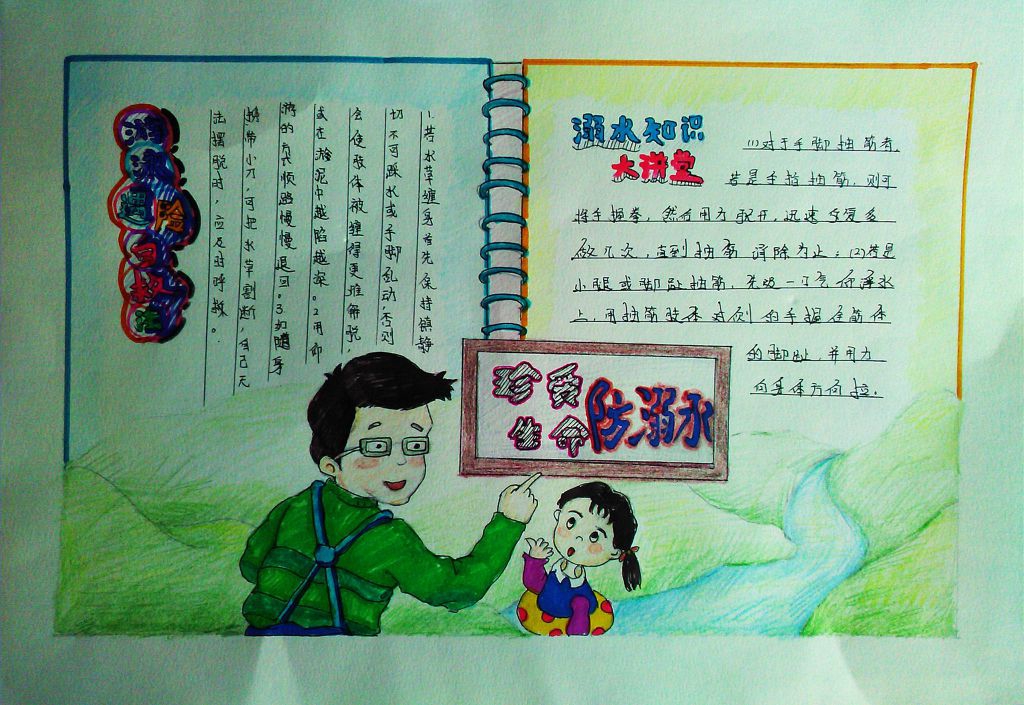 游泳遇险自救法
1.若水草缠身首先保持镇静
切不可踩水或手脚乱动,否则
会使肢体被缠得更难解脱,
或在淤泥中越陷越深。2.用仰
游的方式顺路慢慢退回。3.如随身
携带小刀,可把水草割断,自己无
法摆脱时,应及时呼救。
溺水知识
大讲堂
(1)对于手脚抽筋者,
若是手指抽筋,则可
将手握拳,然后用力张开,迅速反复多
做几次,直到抽筋消除为止;(2)若是
小腿或脚趾抽筋,先吸一口气仰浮水
上,用抽筋肢体对侧的手握住筋体
的脚趾,并用力
向身体方向拉。
珍爱
生命
防溺水